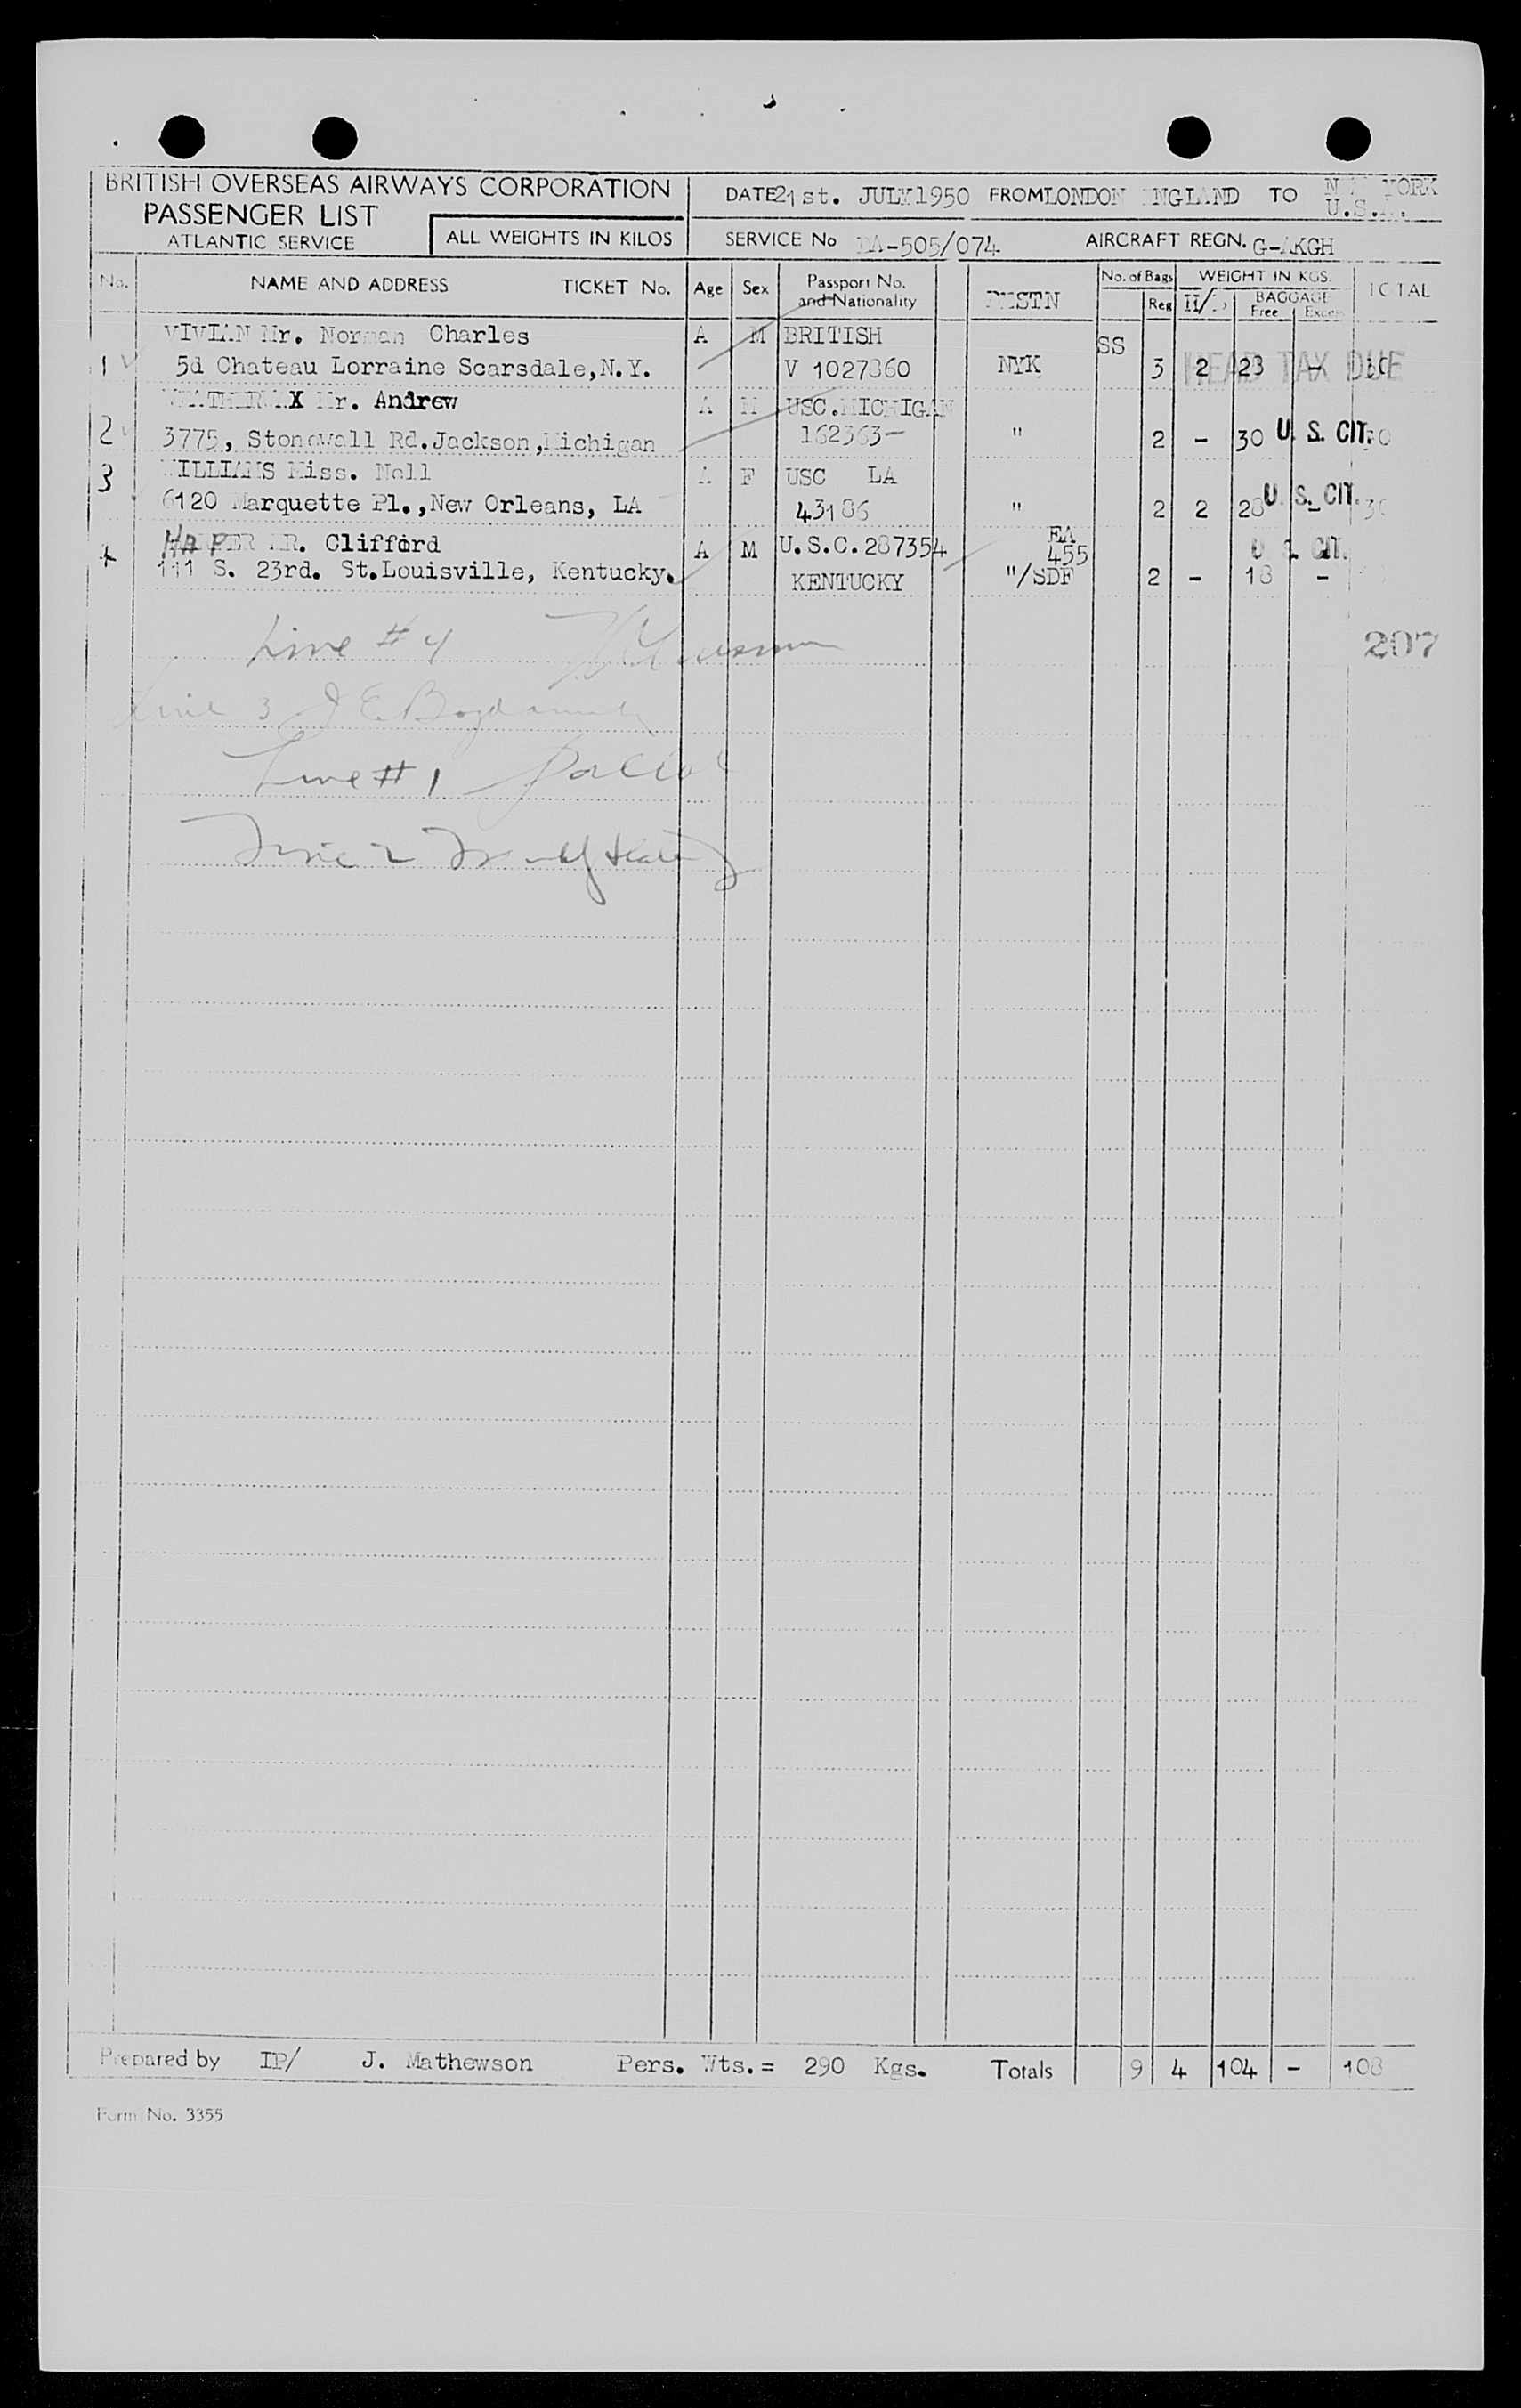 BRITISH OVERSEAS AIRWAYS CORPORATION
PASSENGER LIST
ATLANTIC SERVICE
ALL WEIGHTS IN KILOS
DATE 21st. JULY 1950 FROM LONDON ENGLAND TO NEW YORK U.S.A.
SERVICE No BA-505/074 AIRCRAFT REGN. G-AKGH
No. NAME AND ADDRESS TICKET No. Age Sex Passport No. and Nationality DESTN No. of Bags Reg H/B WEIGHT IN KGS. BAGGAGE Free Excess TOTAL
VIVIAN Mr. Norman Charles A M BRITISH SS
1 5d Chateau Lorraine Scarsdale, N.Y. V 1027860 NYK 3 2 28 - 30 HEAD TAX DUE
WEATHERWAX Mr. Andrew A M USC. MICHIGAN
2 3775, Stonewall Rd. Jackson, Michigan 162363 - " 2 - 30 U. S. CIT. 30
3 WILLIAMS Miss. Nell A F USC LA
6120 Marquette Pl., New Orleans, LA 43186 " 2 2 28 - U. S. CIT. 30
HARPER MR. Clifford A M U.S.C. 287354 EA 455 U. S. CIT.
111 S. 23rd. St. Louisville, Kentucky. KENTUCKY "/SDF 2 - 18 -
Line # 4
207
Line 3 J E
Line # 1
Line 2
Prepared by IP/ J. Mathewson Pers. Wts. = 290 Kgs. Totals 9 4 104 - 108
Form No. 3355